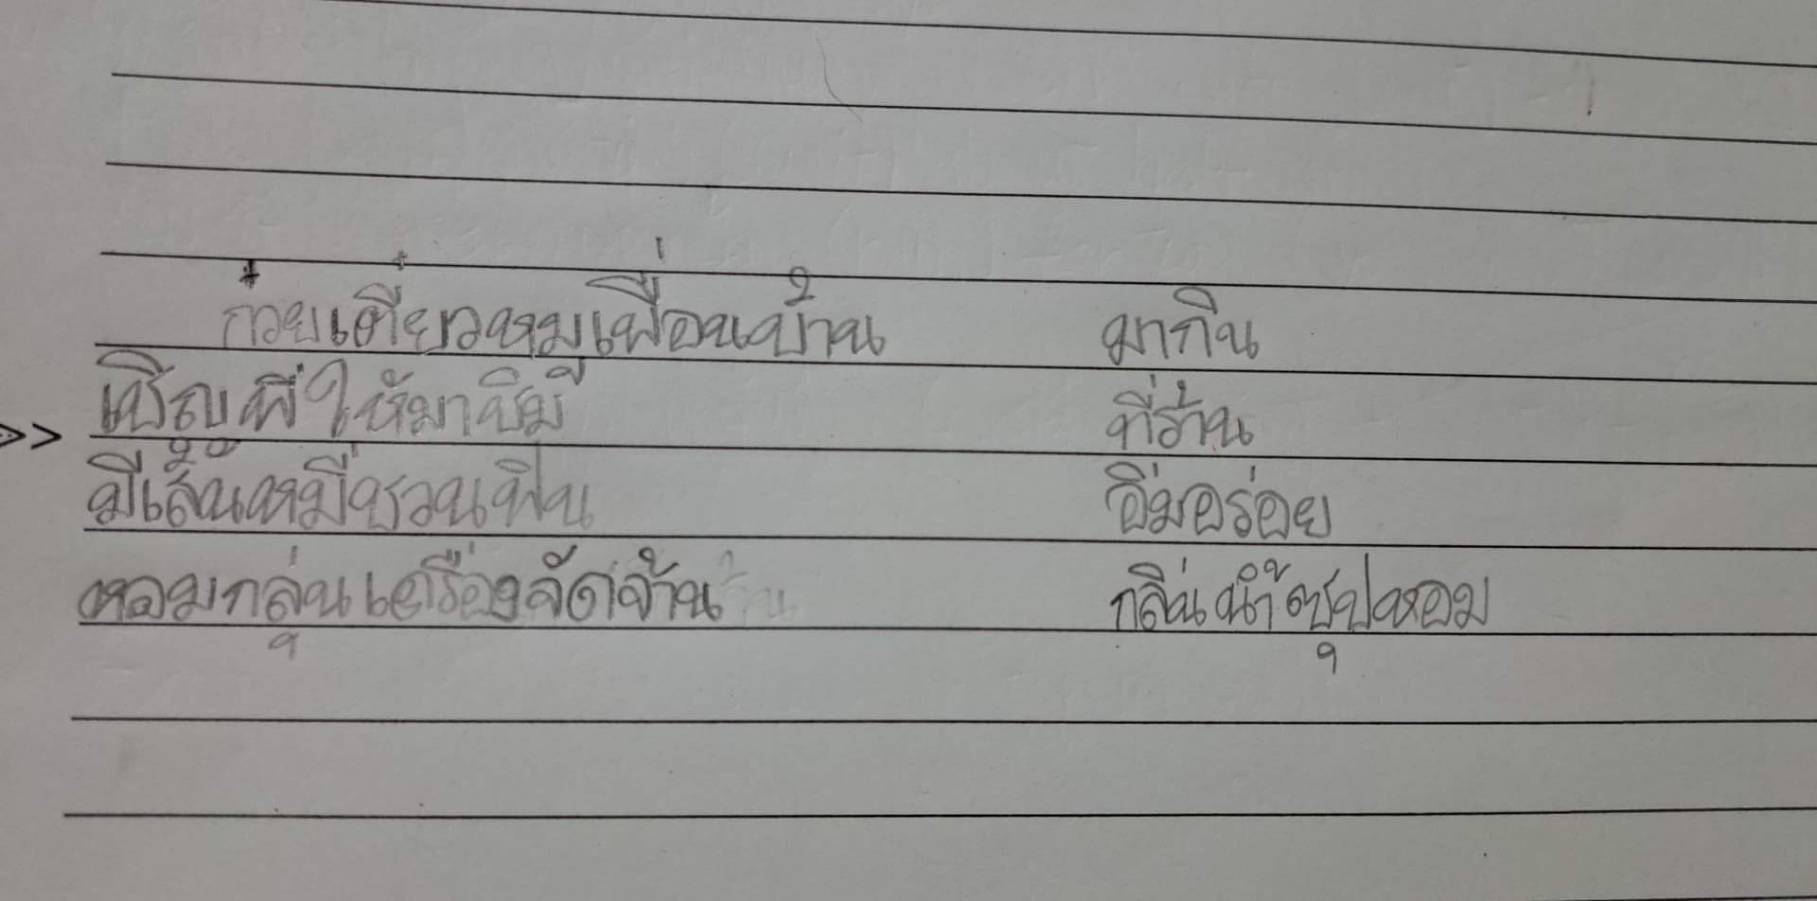 ก๋วยเตี๋ยวหมูเพื่อนบ้าน มากิน
เชิญพี่ให้มาชิม ที่ร้าน
มีเส้นหมี่ชวนฟิน อิ่มอร่อย
หอมกลุ่นเครื่องจัดจ้าน กลิ่นน้ำซุปหอม